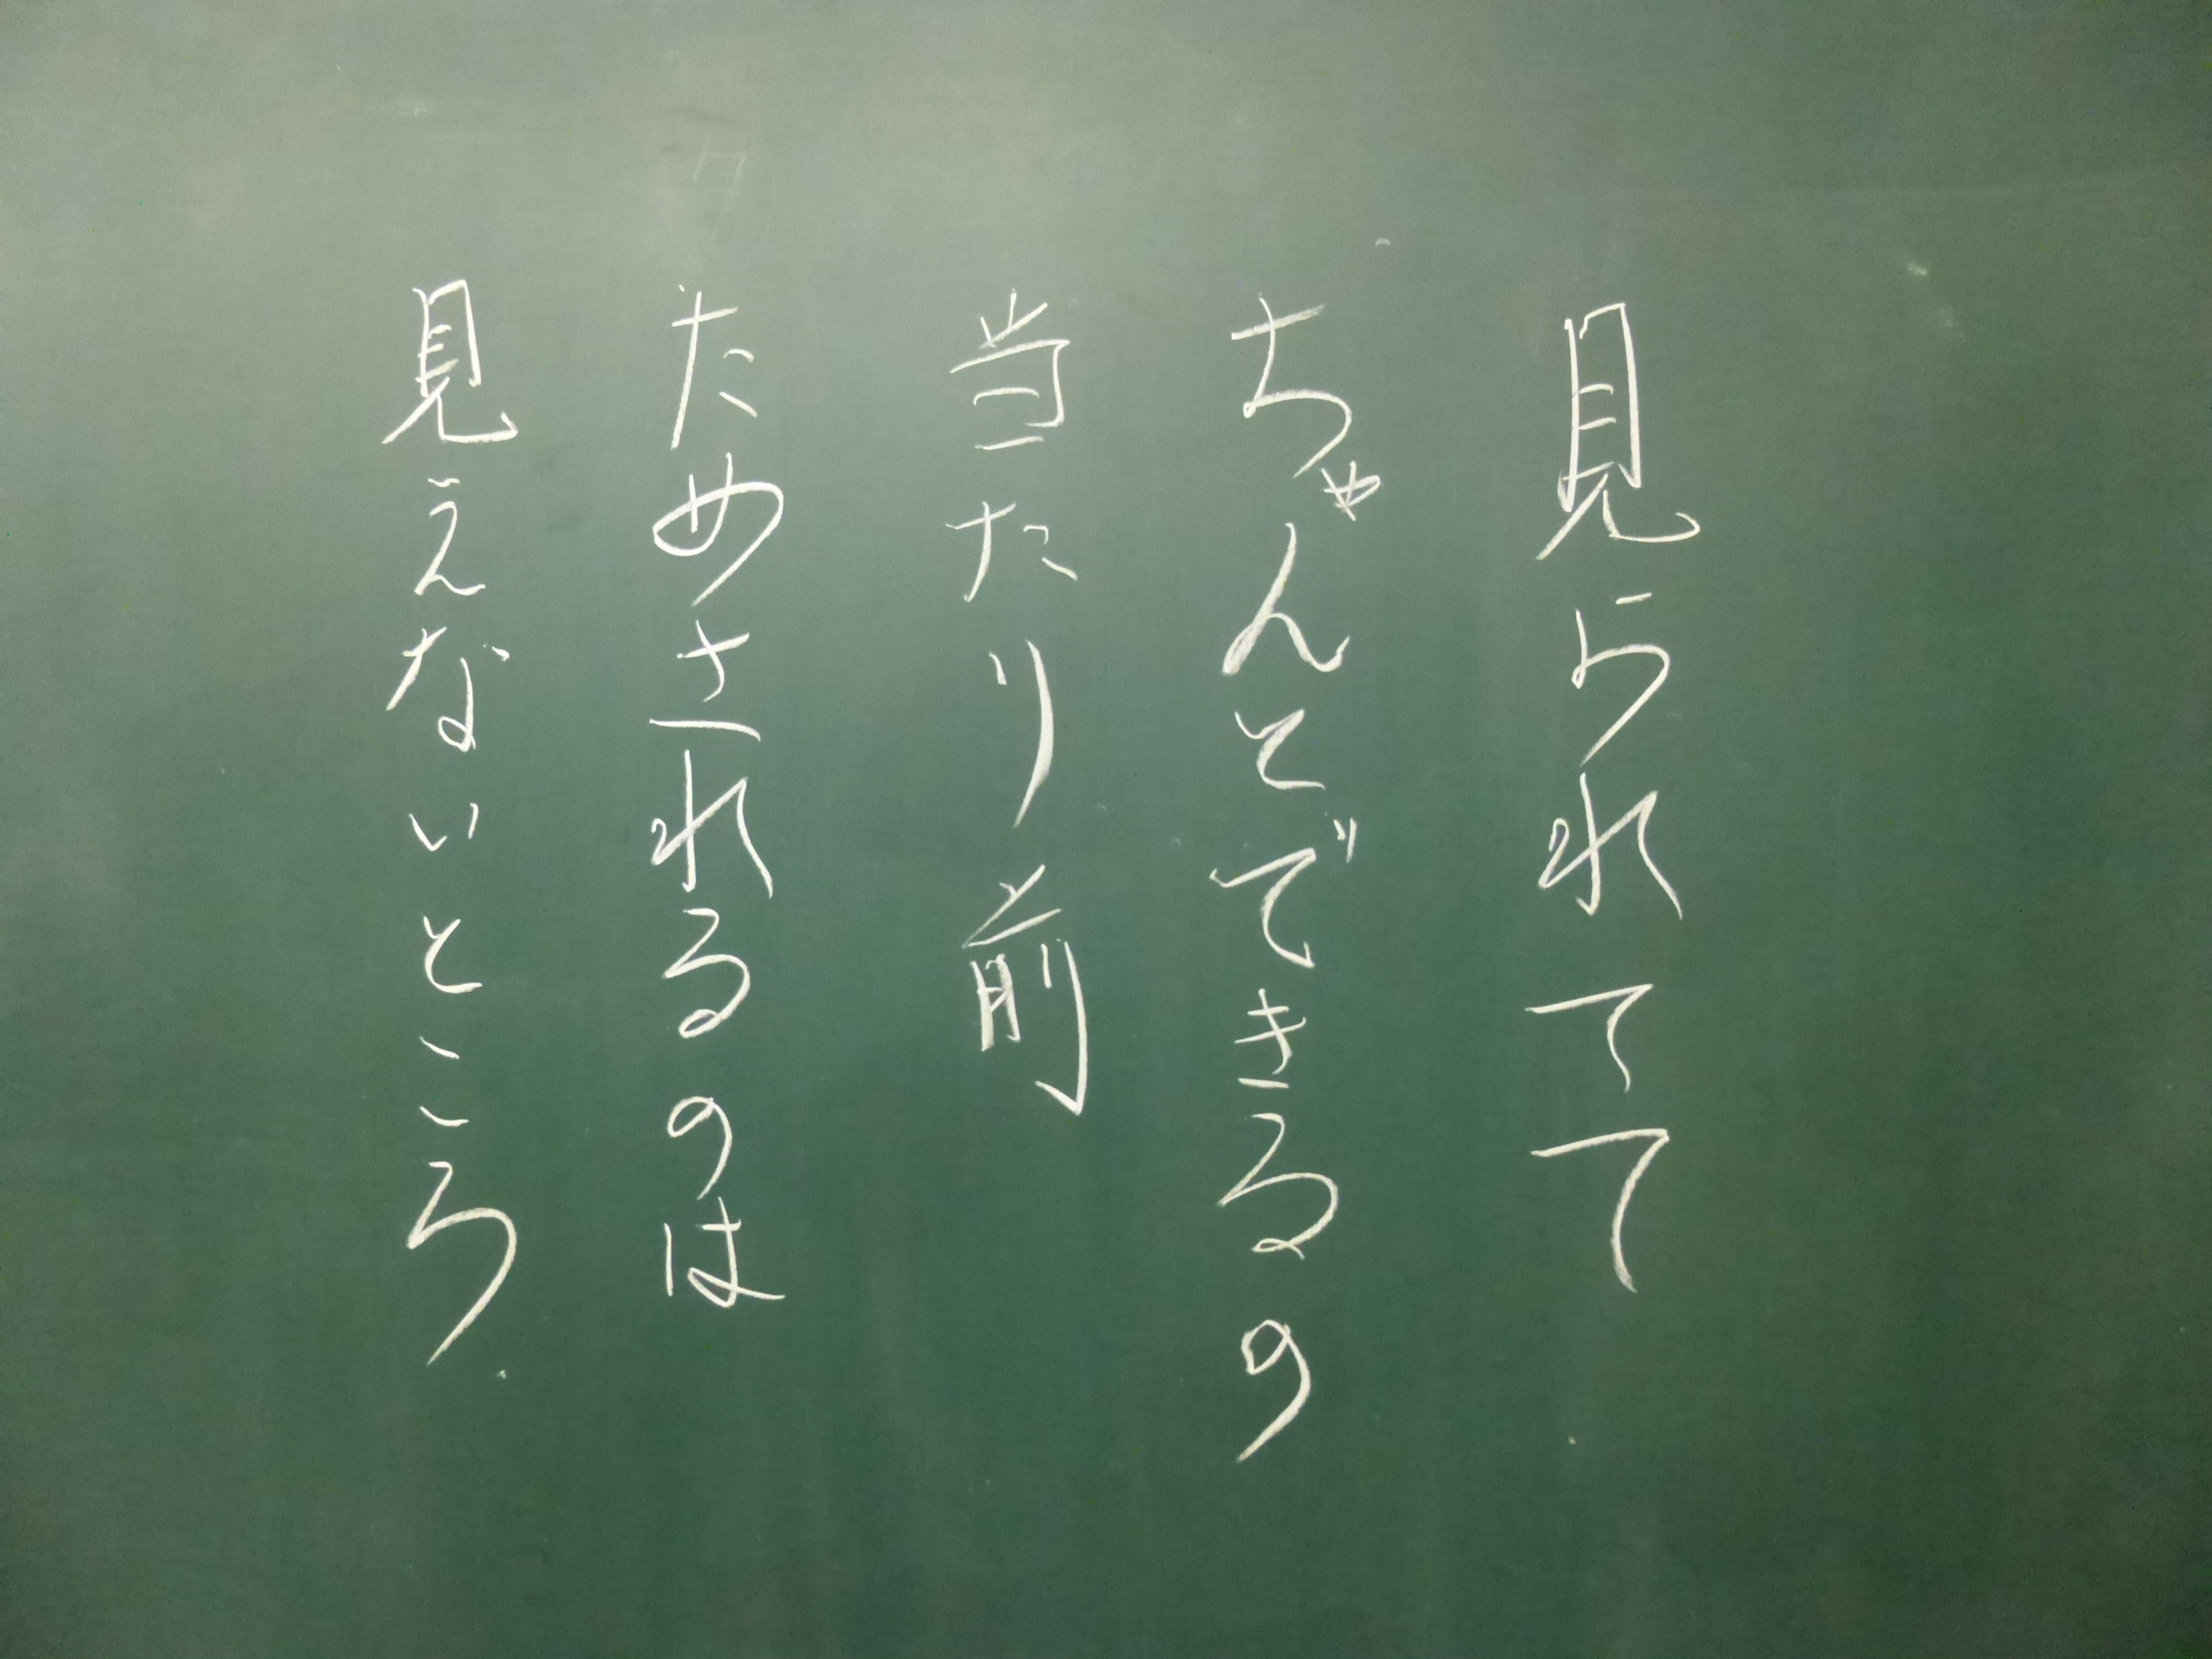 見られてて
ちゃんとできるの
当たり前
ためされるのは
見えないところ